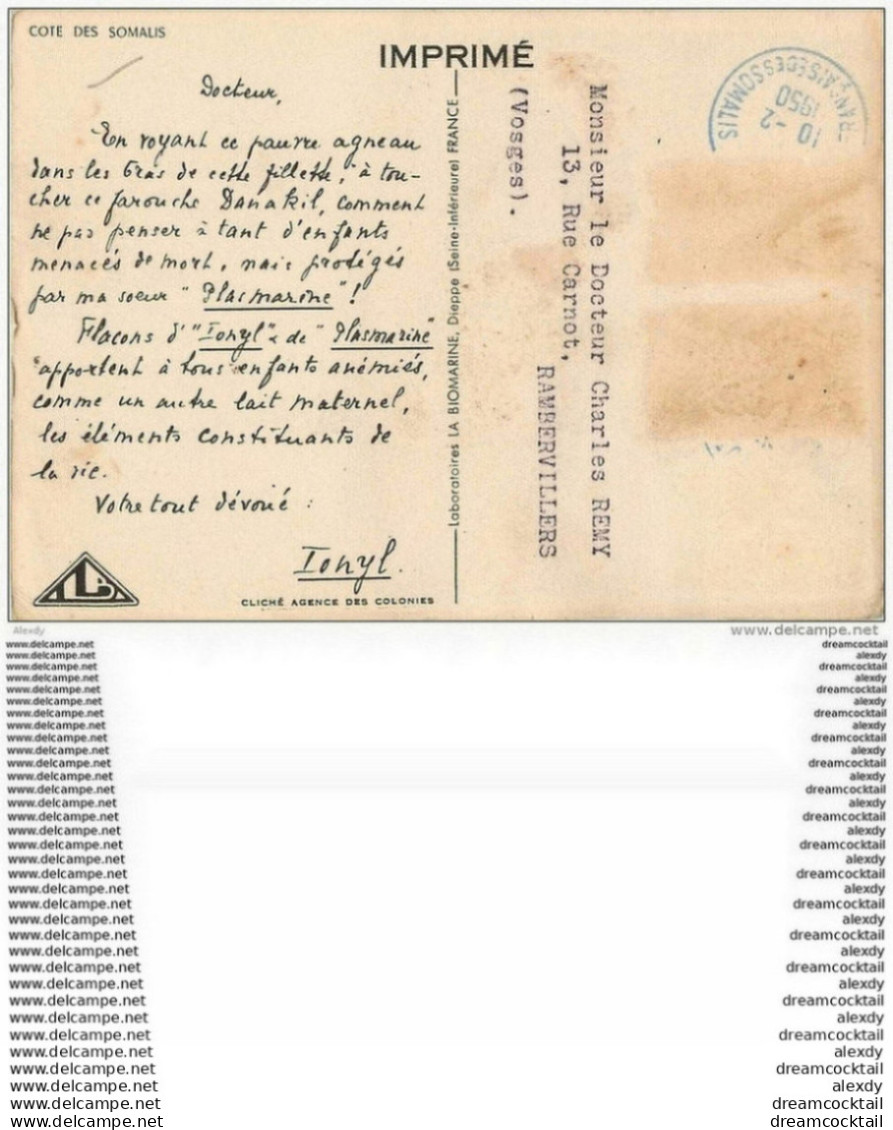 COTE DES SOMALIS
IMPRIMÉ
Docteur,
En voyant ce pauvre agneau
dans les bras de cette fillette, à tou-
cher ce farouche Danakil, comment
ne pas penser à tant d'enfants
menacés de mort, mais protégés
par ma soeur "Plasmarine"!
Flacons d'"Ionyl" & de "Plasmarine"
apportent à tous enfants anémiés,
comme un autre lait maternel,
les éléments constituants de
la vie.
Votre tout dévoué :
Ionyl.
CLICHÉ AGENCE DES COLONIES
Laboratoires LA BIOMARINE, Dieppe (Seine-Inférieure) FRANCE
Monsieur le Docteur Charles REMY
13, Rue Carnot,
RAMBERVILLERS
(Vosges).
10 -2
1950
SOMALIS
Alexdy
www.delcampe.net
www.delcampe.net dreamcocktail
www.delcampe.net alexdy
www.delcampe.net dreamcocktail
www.delcampe.net alexdy
www.delcampe.net dreamcocktail
www.delcampe.net alexdy
www.delcampe.net dreamcocktail
www.delcampe.net alexdy
www.delcampe.net dreamcocktail
www.delcampe.net alexdy
www.delcampe.net dreamcocktail
www.delcampe.net alexdy
www.delcampe.net dreamcocktail
www.delcampe.net alexdy
www.delcampe.net dreamcocktail
www.delcampe.net alexdy
www.delcampe.net dreamcocktail
www.delcampe.net alexdy
www.delcampe.net dreamcocktail
www.delcampe.net alexdy
www.delcampe.net dreamcocktail
www.delcampe.net alexdy
www.delcampe.net dreamcocktail
www.delcampe.net alexdy
www.delcampe.net dreamcocktail
www.delcampe.net alexdy
www.delcampe.net dreamcocktail
www.delcampe.net alexdy
www.delcampe.net dreamcocktail
www.delcampe.net alexdy
www.delcampe.net dreamcocktail
www.delcampe.net alexdy
www.delcampe.net dreamcocktail
www.delcampe.net dreamcocktail